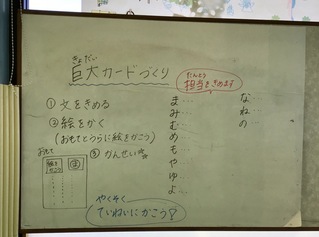 きょだい
巨大カードづくり
① 文をきめる
② 絵をかく
(おもてとうらに絵をかこう)
③ かんせい☆☆
おもて
たんとう
担当をきめます
ま……
み……
む……
め……
も……
や……
ゆ……
よ……
な……
ね……
の……
やくそく
ていねいにかこう!